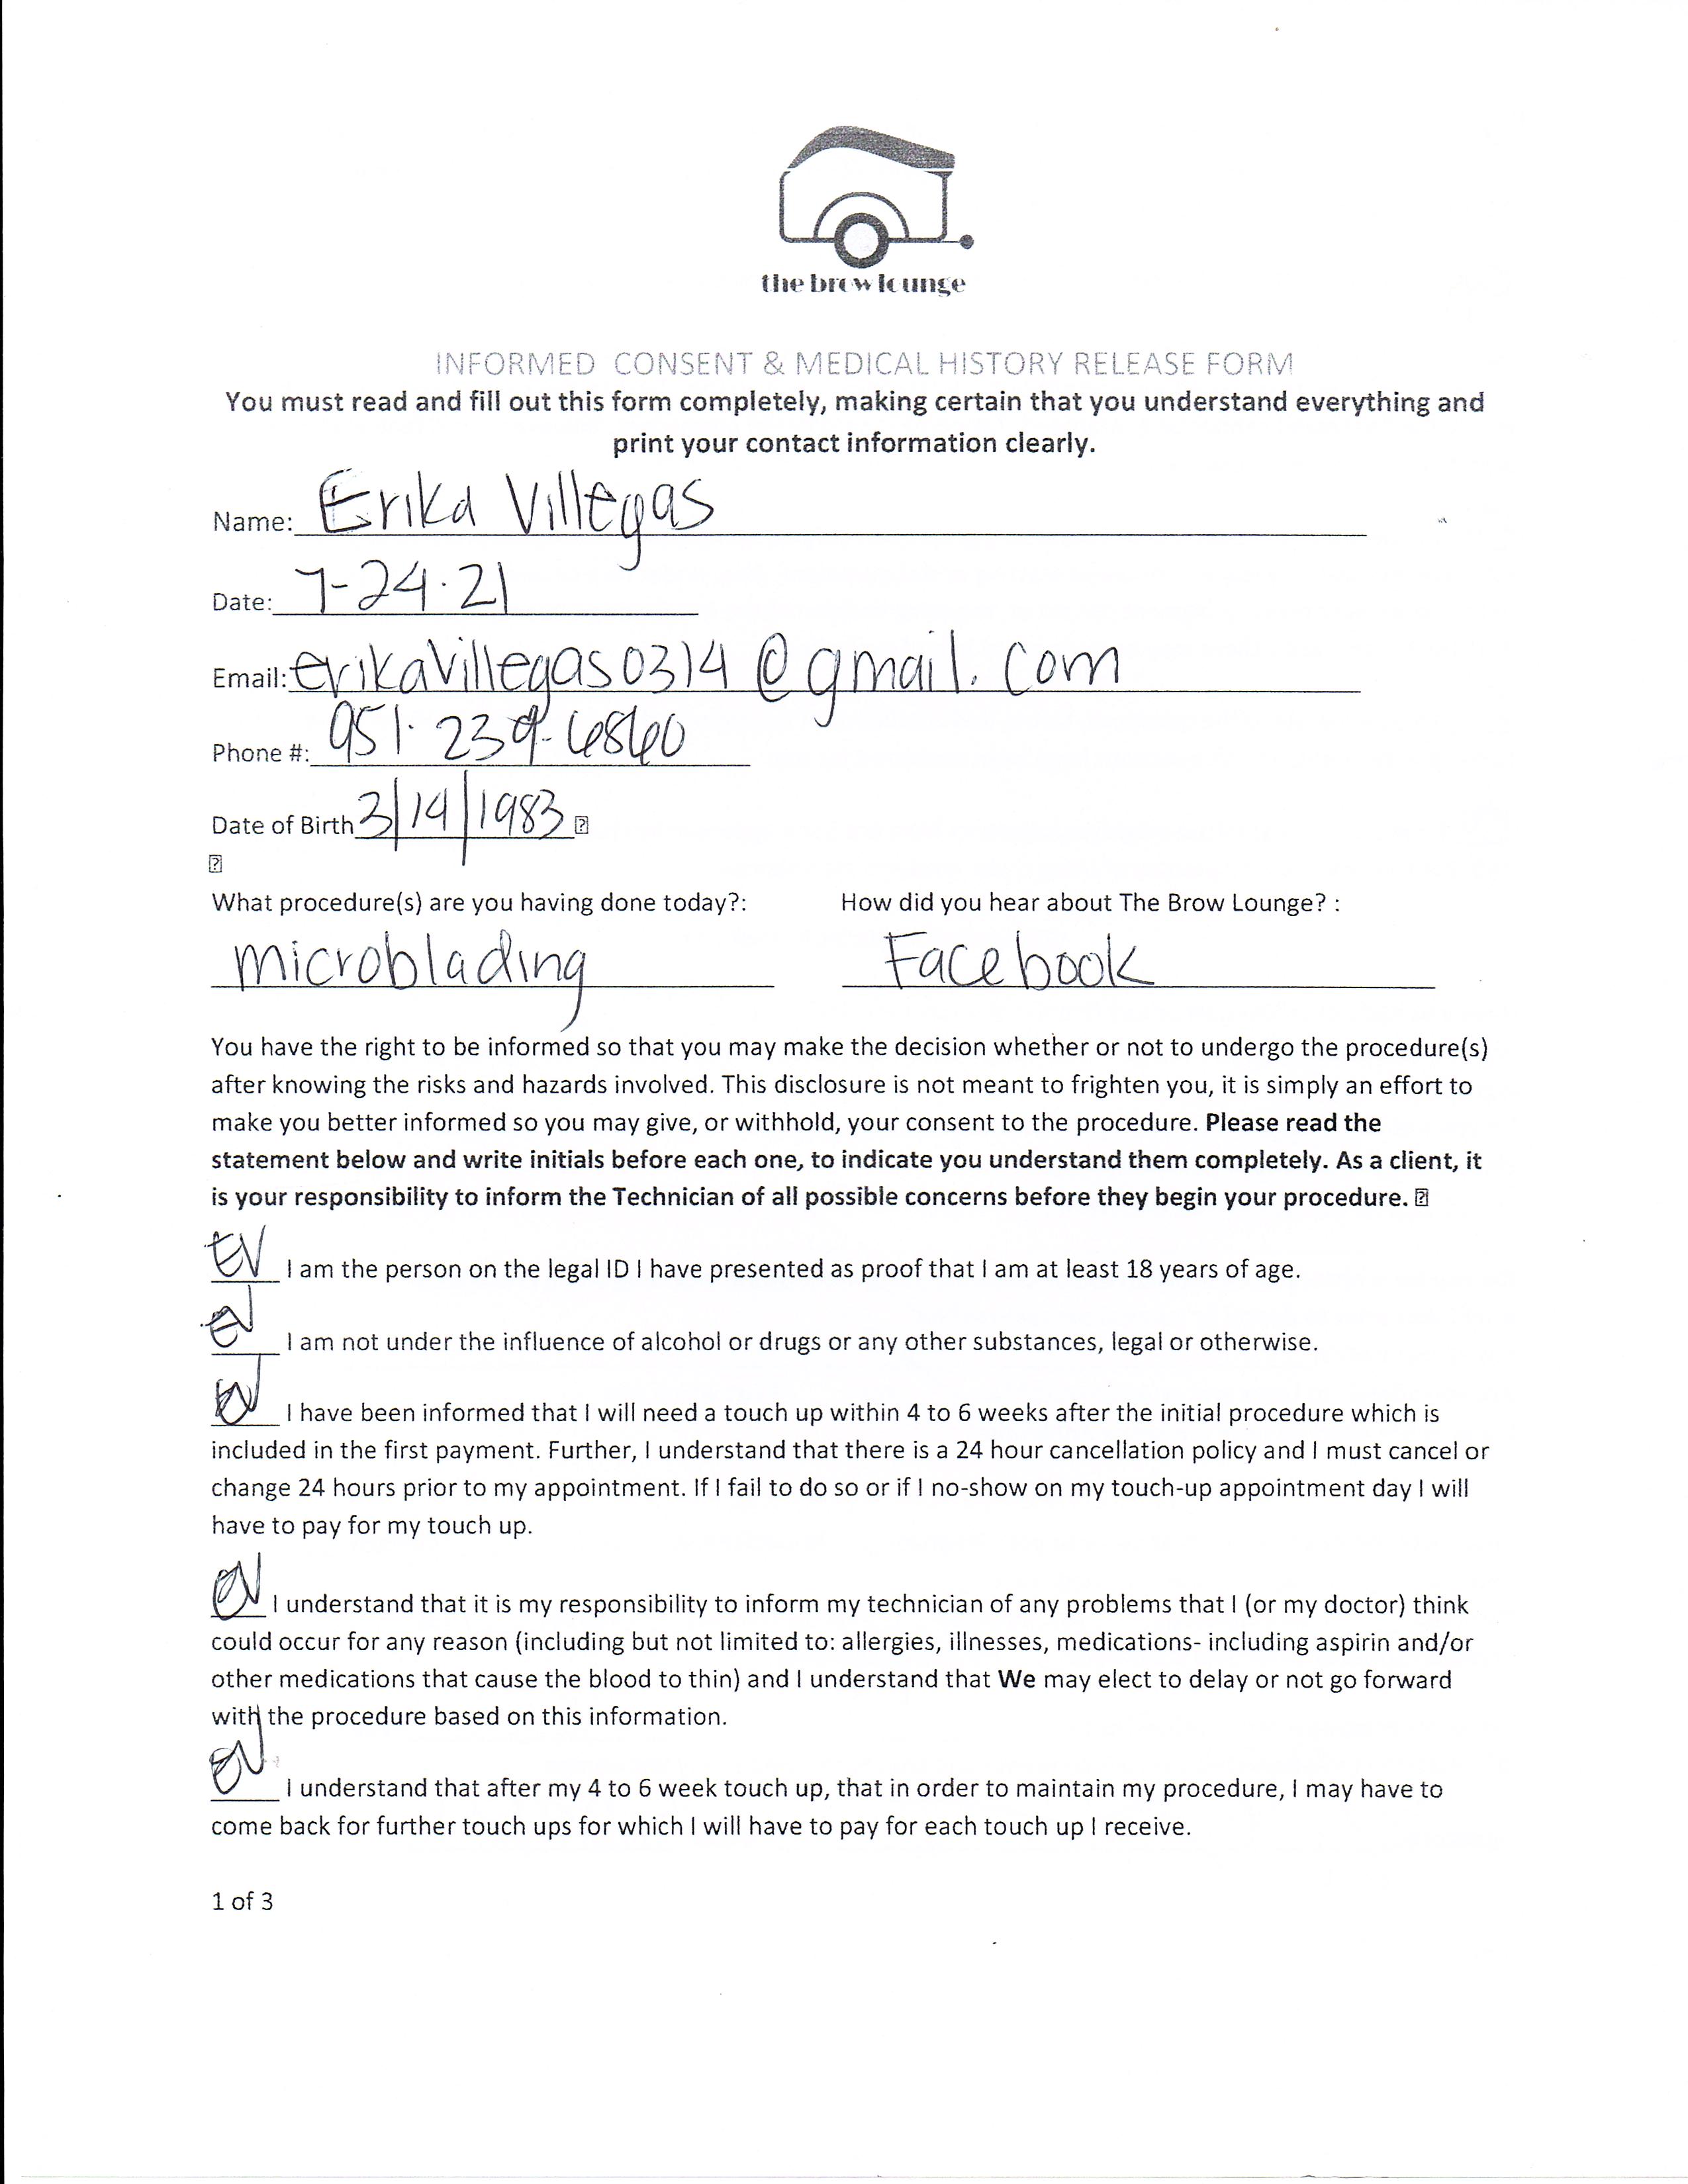 the brow lounge
INFORMED CONSENT & MEDICAL HISTORY RELEASE FORM
You must read and fill out this form completely, making certain that you understand everything and
print your contact information clearly.
Name: Erika Villegas
Date: 7-24.21
Email: erikavillegas0314@gmail.com
Phone #: 951.239-6860
Date of Birth 3/14/1983
What procedure(s) are you having done today?: How did you hear about The Brow Lounge? :
microblading Facebook
You have the right to be informed so that you may make the decision whether or not to undergo the procedure(s)
after knowing the risks and hazards involved. This disclosure is not meant to frighten you, it is simply an effort to
make you better informed so you may give, or withhold, your consent to the procedure. Please read the
statement below and write initials before each one, to indicate you understand them completely. As a client, it
is your responsibility to inform the Technician of all possible concerns before they begin your procedure.
EV I am the person on the legal ID I have presented as proof that I am at least 18 years of age.
EV I am not under the influence of alcohol or drugs or any other substances, legal or otherwise.
EV I have been informed that I will need a touch up within 4 to 6 weeks after the initial procedure which is
included in the first payment. Further, I understand that there is a 24 hour cancellation policy and I must cancel or
change 24 hours prior to my appointment. If I fail to do so or if I no-show on my touch-up appointment day I will
have to pay for my touch up.
EV I understand that it is my responsibility to inform my technician of any problems that I (or my doctor) think
could occur for any reason (including but not limited to: allergies, illnesses, medications- including aspirin and/or
other medications that cause the blood to thin) and I understand that We may elect to delay or not go forward
with the procedure based on this information.
EV I understand that after my 4 to 6 week touch up, that in order to maintain my procedure, I may have to
come back for further touch ups for which I will have to pay for each touch up I receive.
1 of 3